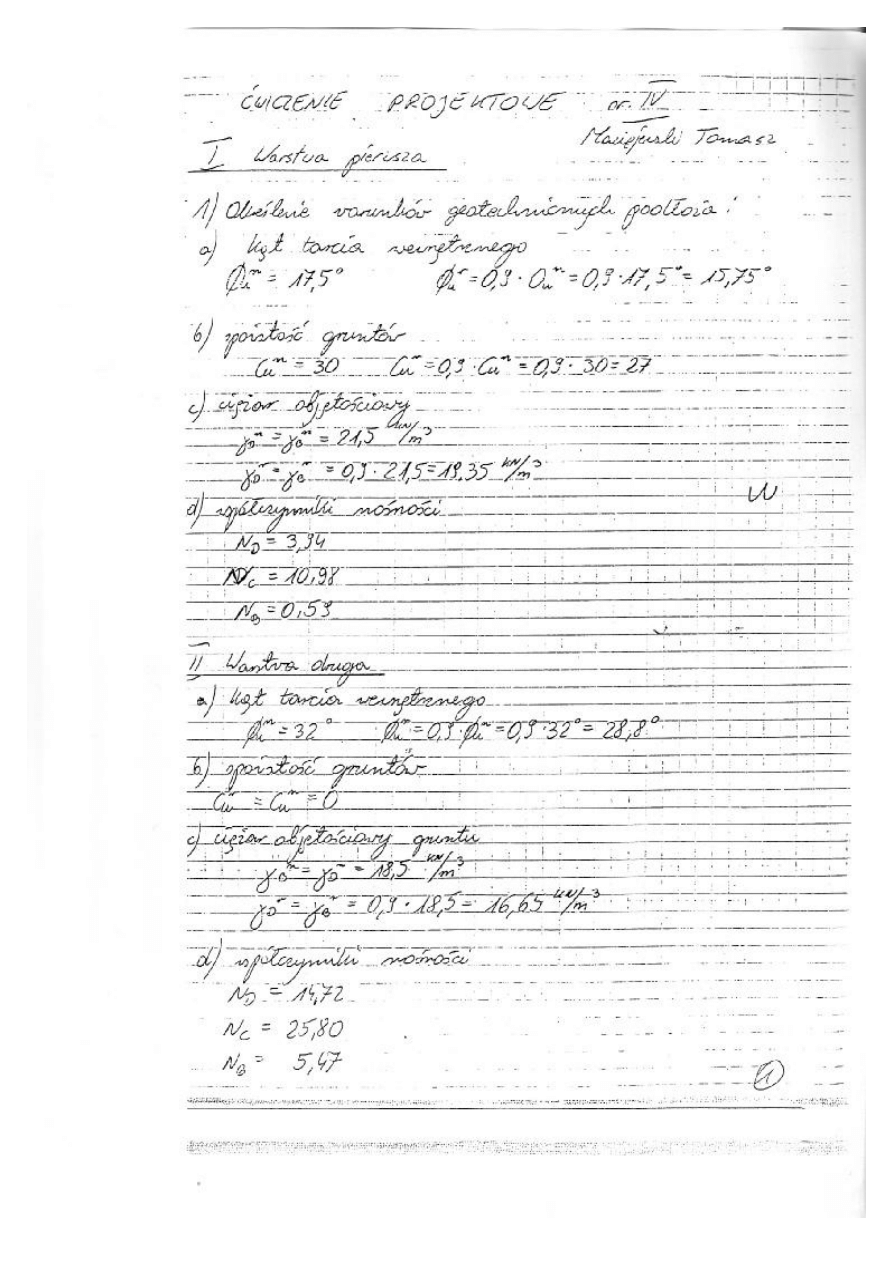 ĆWICZENIE PROJEKTOWE nr. IV
Maciejewski Tomasz
I Warstwa pierwsza
1) Określenie warunków geotechnicznych podłoża:
a) Kąt tarcia wewnętrznego
Φuⁿ = 17,5° Φuʳ = 0,9 · Φuⁿ = 0,9 · 17,5° = 15,75°
b) spoistość gruntów
Cuⁿ = 30 Cuʳ = 0,9 · Cuⁿ = 0,9 · 30 = 27
c) ciężar objętościowy
γDⁿ = γBⁿ = 21,5 kN/m³
γDʳ = γBʳ = 0,9 · 21,5 = 19,35 kN/m³
d) współczynniki nośności
ND = 3,94
NC = 10,98
NB = 0,59
II Warstwa druga
a) kąt tarcia wewnętrznego
Φuⁿ = 32° Φuʳ = 0,9 · Φuⁿ = 0,9 · 32° = 28,8°
b) spoistość gruntów
Cuʳ = Cuⁿ = 0
c) ciężar objętościowy gruntu
γBⁿ = γDⁿ = 18,5 kN/m³
γDʳ = γBʳ = 0,9 · 18,5 = 16,65 kN/m³
d) współczynniki nośności
ND = 14,72
NC = 25,80
NB = 5,47
1